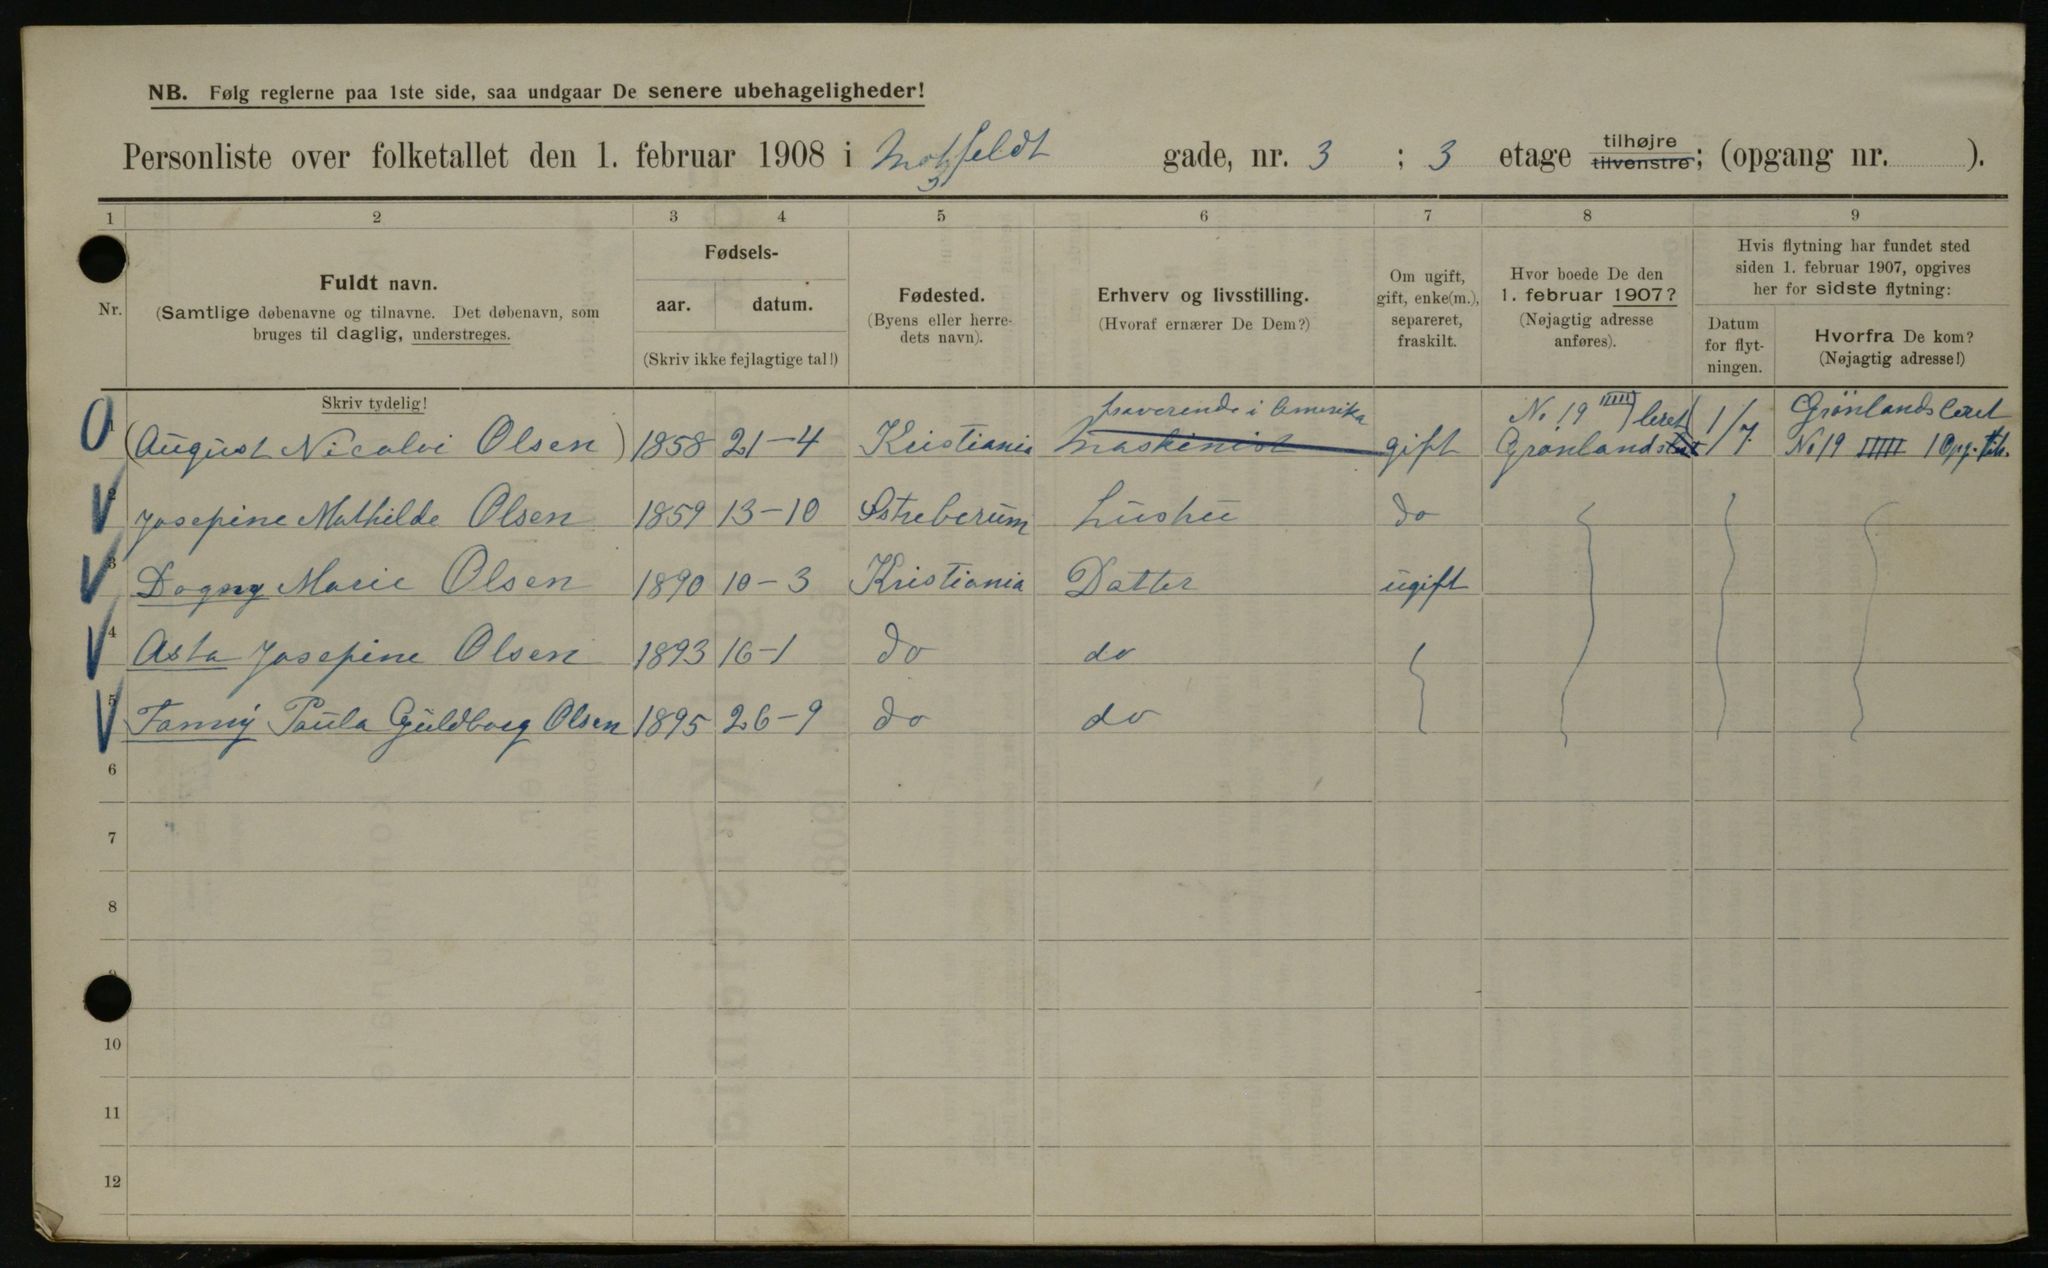 NB. Følg reglerne paa 1ste side, saa undgaar De senere ubehageligheder!
Personliste over folketallet den 1. februar 1908 i Motzfeldt gade, nr. 3 ; 3 etage tilhøjre tilvenstre; (opgang nr. ).
1 2 3 4 5 6 7 8 9
Nr.
Fuldt navn.
(Samtlige døbenavne og tilnavne. Det døbenavn, som
bruges til daglig, understreges.
Fødsels-
aar. datum.
(Skriv ikke fejlagtige tal!)
Fødested.
(Byens eller herre-
dets navn).
Erhverv og livsstilling.
(Hvoraf ernærer De Dem?)
Om ugift,
gift, enke(m.),
separeret,
fraskilt.
Hvor boede De den
1. februar 1907?
(Nøjagtig adresse
anføres).
Hvis flytning har fundet sted
siden 1. februar 1907, opgives
her for sidste flytning:
Datum
for flyt-
ningen.
Hvorfra De kom?
(Nøjagtig adresse!)
Skriv tydelig!
fraverende i Amerika No 19 IIIII leret Grönlandsleret
1 (August Nicolai Olsen) 1858 21-4 Kristiania Maskinist gift Grønlands 1/7 No 19 IIIII 1 Opg.
2 Josepine Mathilde Olsen 1859 13-10 Hustru do
3 Dagny Marie Olsen 1890 10-3 Kristiania Datter ugift
4 Asta Josepine Olsen 1893 16-1 do do
5 Fanny Paula Guldborg Olsen 1895 26-9 do do
6
7
8
9
10
11
12